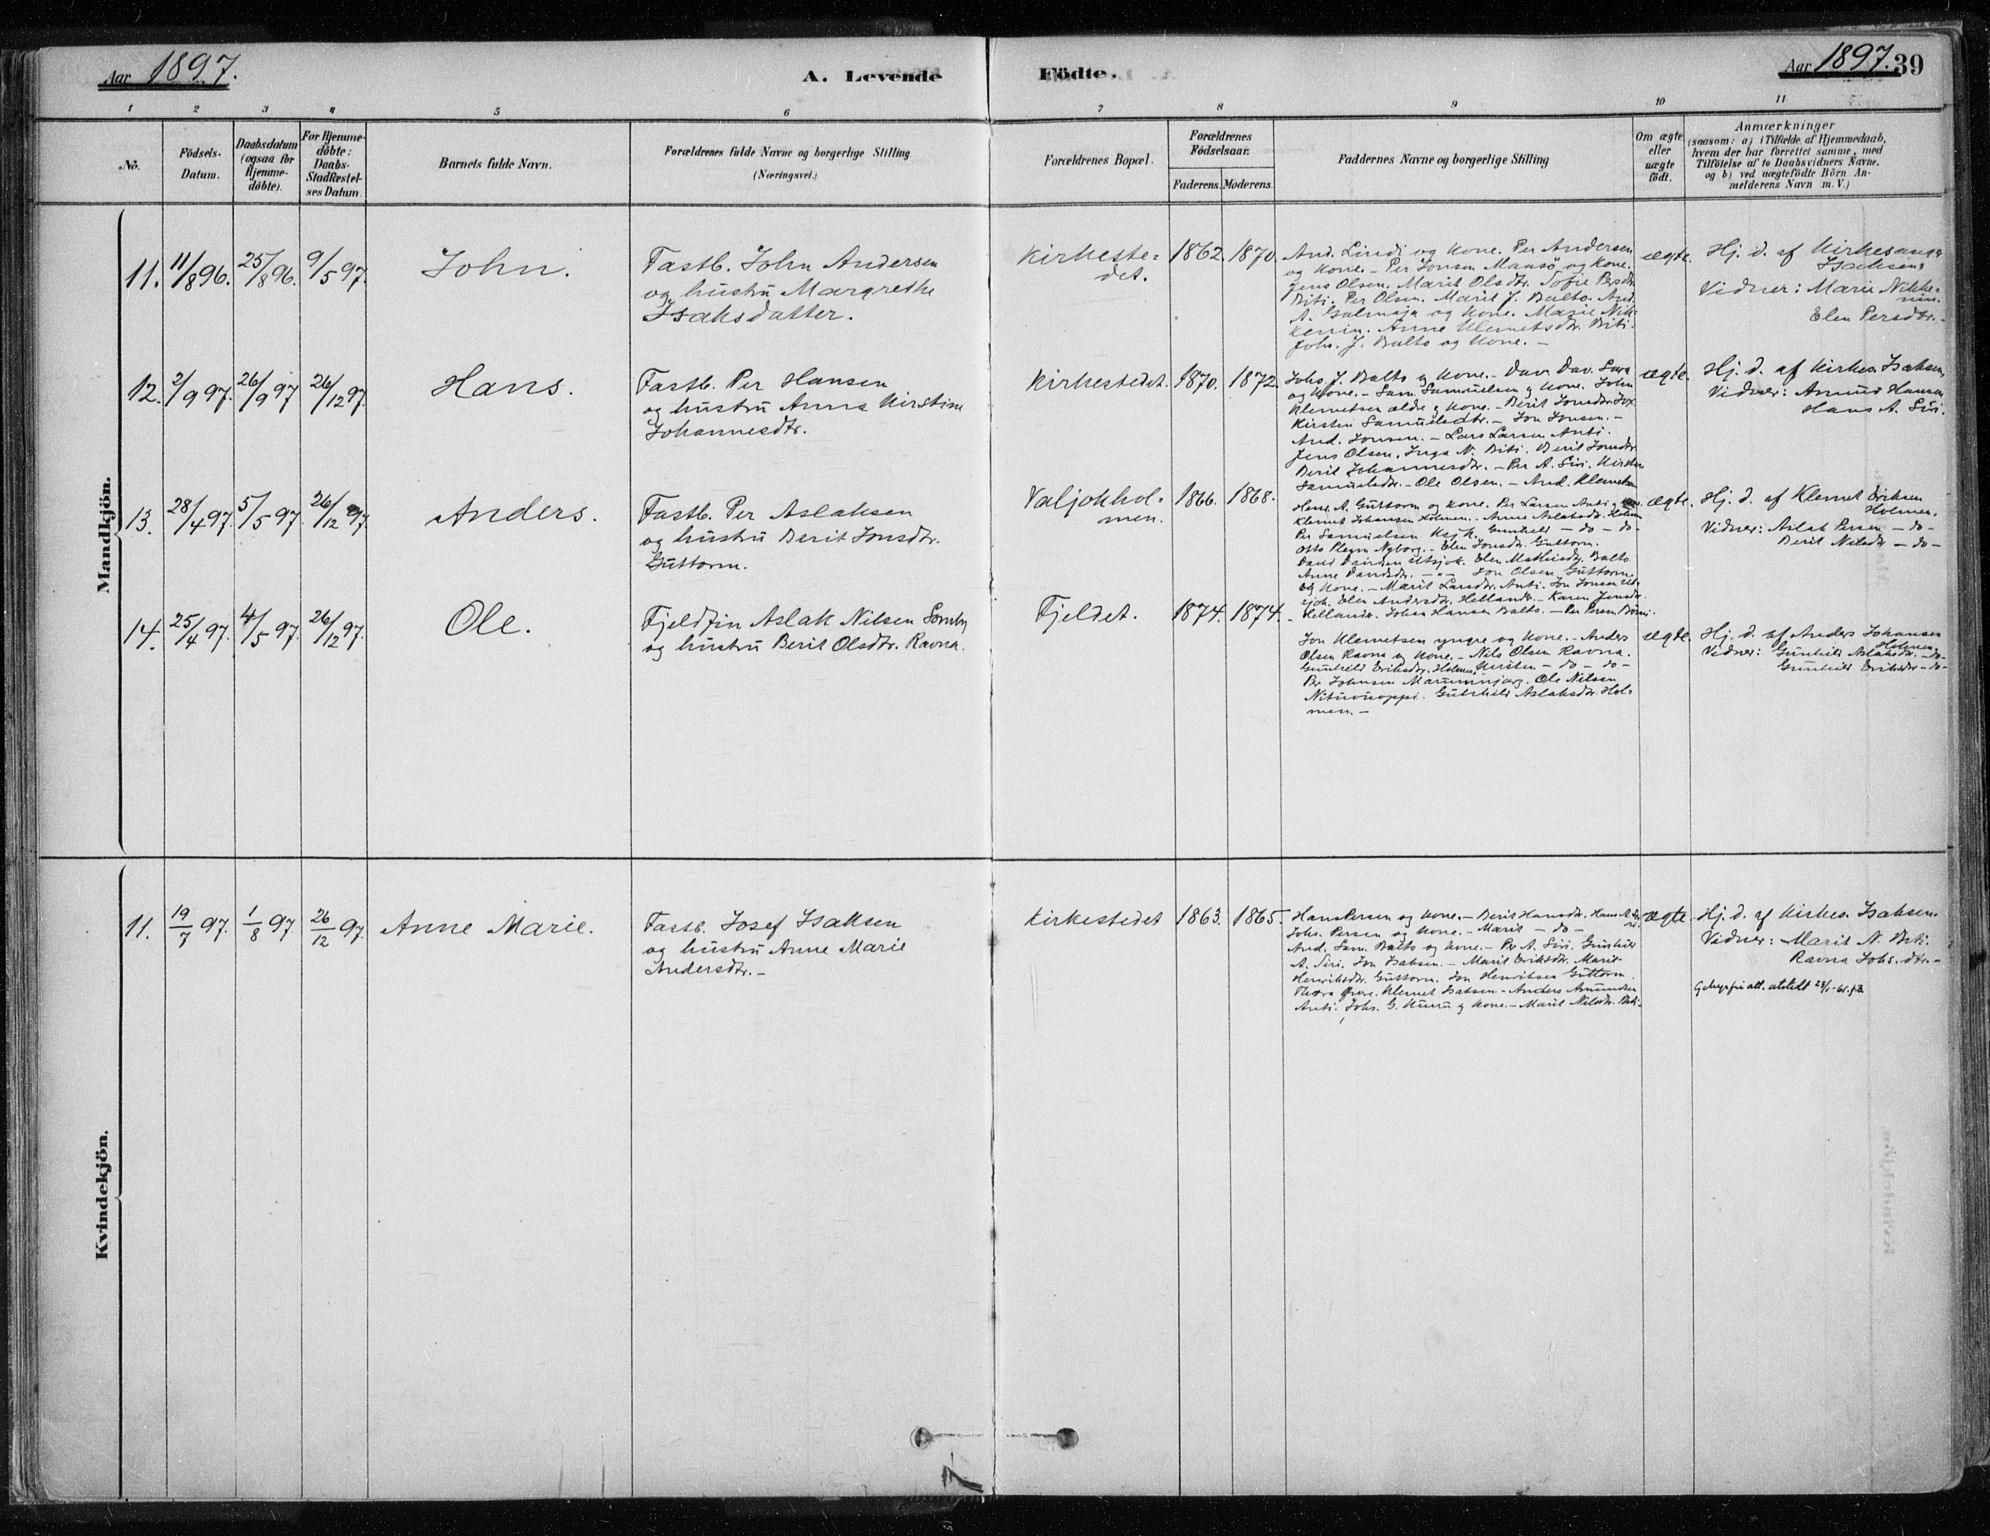 Aar 1897.
A. Levende Födte.
Aar 1897. 39
1 2 3 4 5 6 7 8 9 10 11
No.
Födsels-
Datum.
Daabsdatum
(ogsaa for
Hjemme-
döbte).
For Hjemme-
döbte:
Daabs-
Stadfæstel-
ses Datum.
Barnets fulde Navn.
Forældrenes fulde Navne og borgerlige Stilling
(Næringsvei.)
Forældrenes Bopæl.
Forældrenes
Födselsaar.
Faderens. Moderens.
Faddernes Navne og borgerlige Stilling
Om ægte
eller
uægte
födt.
Anmærkninger
(saasom: a) i Tilfælde af Hjemmedaab,
hvem der har forrettet samme, med
Tilföielse af to Daabsvidners Navne,
og b) ved uægtefödte Börn An-
melderens Navn m. V.)
Mandkjön.
11. 11/8 96. 25/8 96. 9/5 97. John.
Fastb. John Andersen
og hustru Margrethe
Isaksdatter.
Kirkeste-
det.
1862. 1870.
And. Lindi og Kone. Per Andersen
og Kone. - Per Jonsen Mansö og Kone.
Jens Olsen. Marit Olsdtr. Sofie Persdtr.
Biti. Per Olsen. Marit J. Balto. And.
A. Galmaja og Kone. Marie Nik-
kenin. Anne Klemetsdtr. Biti.
Johs. J. Balto og Kone. -
ægte.
Hj. d. af Kirkesanger
Isaksen.
Vidner: Marie Nikke-
nin.
Elen Persdtr. -
12. 2/9 97. 26/9 97 26/12 97. Hans.
Fastb. Per Hansen
og hustru Anna Kirstine
Johannesdtr.
Kirkestedet. 1870. 1872.
Johs. J. Balto og Kone. - Dav. Dav. Sara
og Kone. - Sam. Samuelsen og Kone. John
Klemetsen ældre og Kone. - Berit Jonsdtr.
Kirsten Samuelsdtr. - Jon Jonsen. -
And. Jonsen. - Lars Larsen Anti.
Jens Olsen. Inga N. Biti. Berit Jonsdtr.
Berit Johannesdtr. - Per A. Siri. Kirsten
Samuelsdtr. - Ole Olsen. - And. Klemetsen
ægte.
Hj. d. af Kirkes. Isaksen.
Vidner: Amund Hansen
Hans A. Siri.
13. 28/4 97. 5/5 97. 26/12 97. Anders.
Fastb. Per Aslaksen
og hustru Berit Jonsdtr.
Guttorm.
Valjokhol-
men.
1866. 1868.
Hans A. Guttorm og Kone. Per Larsen Anti og Kone
Klemet Johansen Holmen. Anne Aslaksdtr. Holmen
Per Samuelsen Gunhild - do - do -
Otto Nyborg. - Elen Jonsdtr. Guttorm.
David Davidsen Utsjok. Elen Mathisdtr. Balto.
Anne Davidsdtr. - " - Jon Olsen Guttorm.
og Kone. - Marit Larsdtr. Anti. Jon Jonsen Ut-
sjok. Elen Andersdtr. Hellander. - Karen Jensdtr
Hellander. Johan Hansen Balto. - Per Persen
ægte.
Hj. d. af Klemet Eriksen
Holmen.
Vidner: Aslak Persen - do -
Berit Nilsdtr - do -
14. 25/4 97. 4/5 97. 26/12 97. Ole.
Fjeldfin Aslak Nilsen Somby
og hustru Berit Olsdtr. Ravna.
Fjeldet. 1874. 1874.
Jon Klemetsen yngre og Kone. - Anders
Olsen Ravna og Kone. - Nils Olsen Ravna.
Gunhild Eriksdtr. Holmen, Kirsten - do - do -
Per Johnsen Ole Nilsen
Gunhild Aslaksdtr. Hol-
men. -
ægte.
Hj. d. af Anders Johansen
Holmen.
Vidner: Gunhild Aslaksdtr. - do -
Gunhild Eriksdtr - do -
Kvindekjön.
11. 19/7 97. 1/8 97 26/12 97. Anne Marie.
Fastb. Josef Isaksen
og hustru Anne Marie
Andersdtr. -
Kirkestedet 1863. 1865.
Hans Persen og Kone. - Berit Hansdtr. Hans A. Siri
Johs. Persen og Kone. - Marit - do -
And. Sam. Balto og Kone. - Per A. Siri. Gunhild
A. Siri. Jon Isaksen. - Marit Eriksdtr. Marit
Henriksdtr. Guttorm. Jon Henriksen Guttorm.
Thora Klemet Isaksen. - Anders Amundsen
Anti. Johs. G. og Kone. - Marit Nilsdtr. Biti.
ægte.
Hj. d. af Kirkes. Isaksen.
Vidner: Marit N. Biti.
Ravna Johs.dtr. -
Gebyrfri att. utstedt